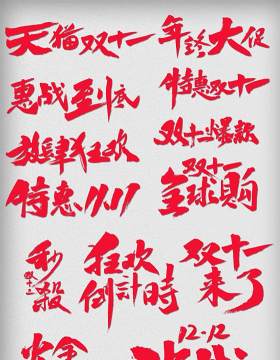 天猫双十一
年終大促
惠战到底
特惠双十一
放肆狂欢
双十一爆款
特惠11.11
双十一
全球購
秒殺
双十二
狂欢
倒計時
双十一
来了
12-12